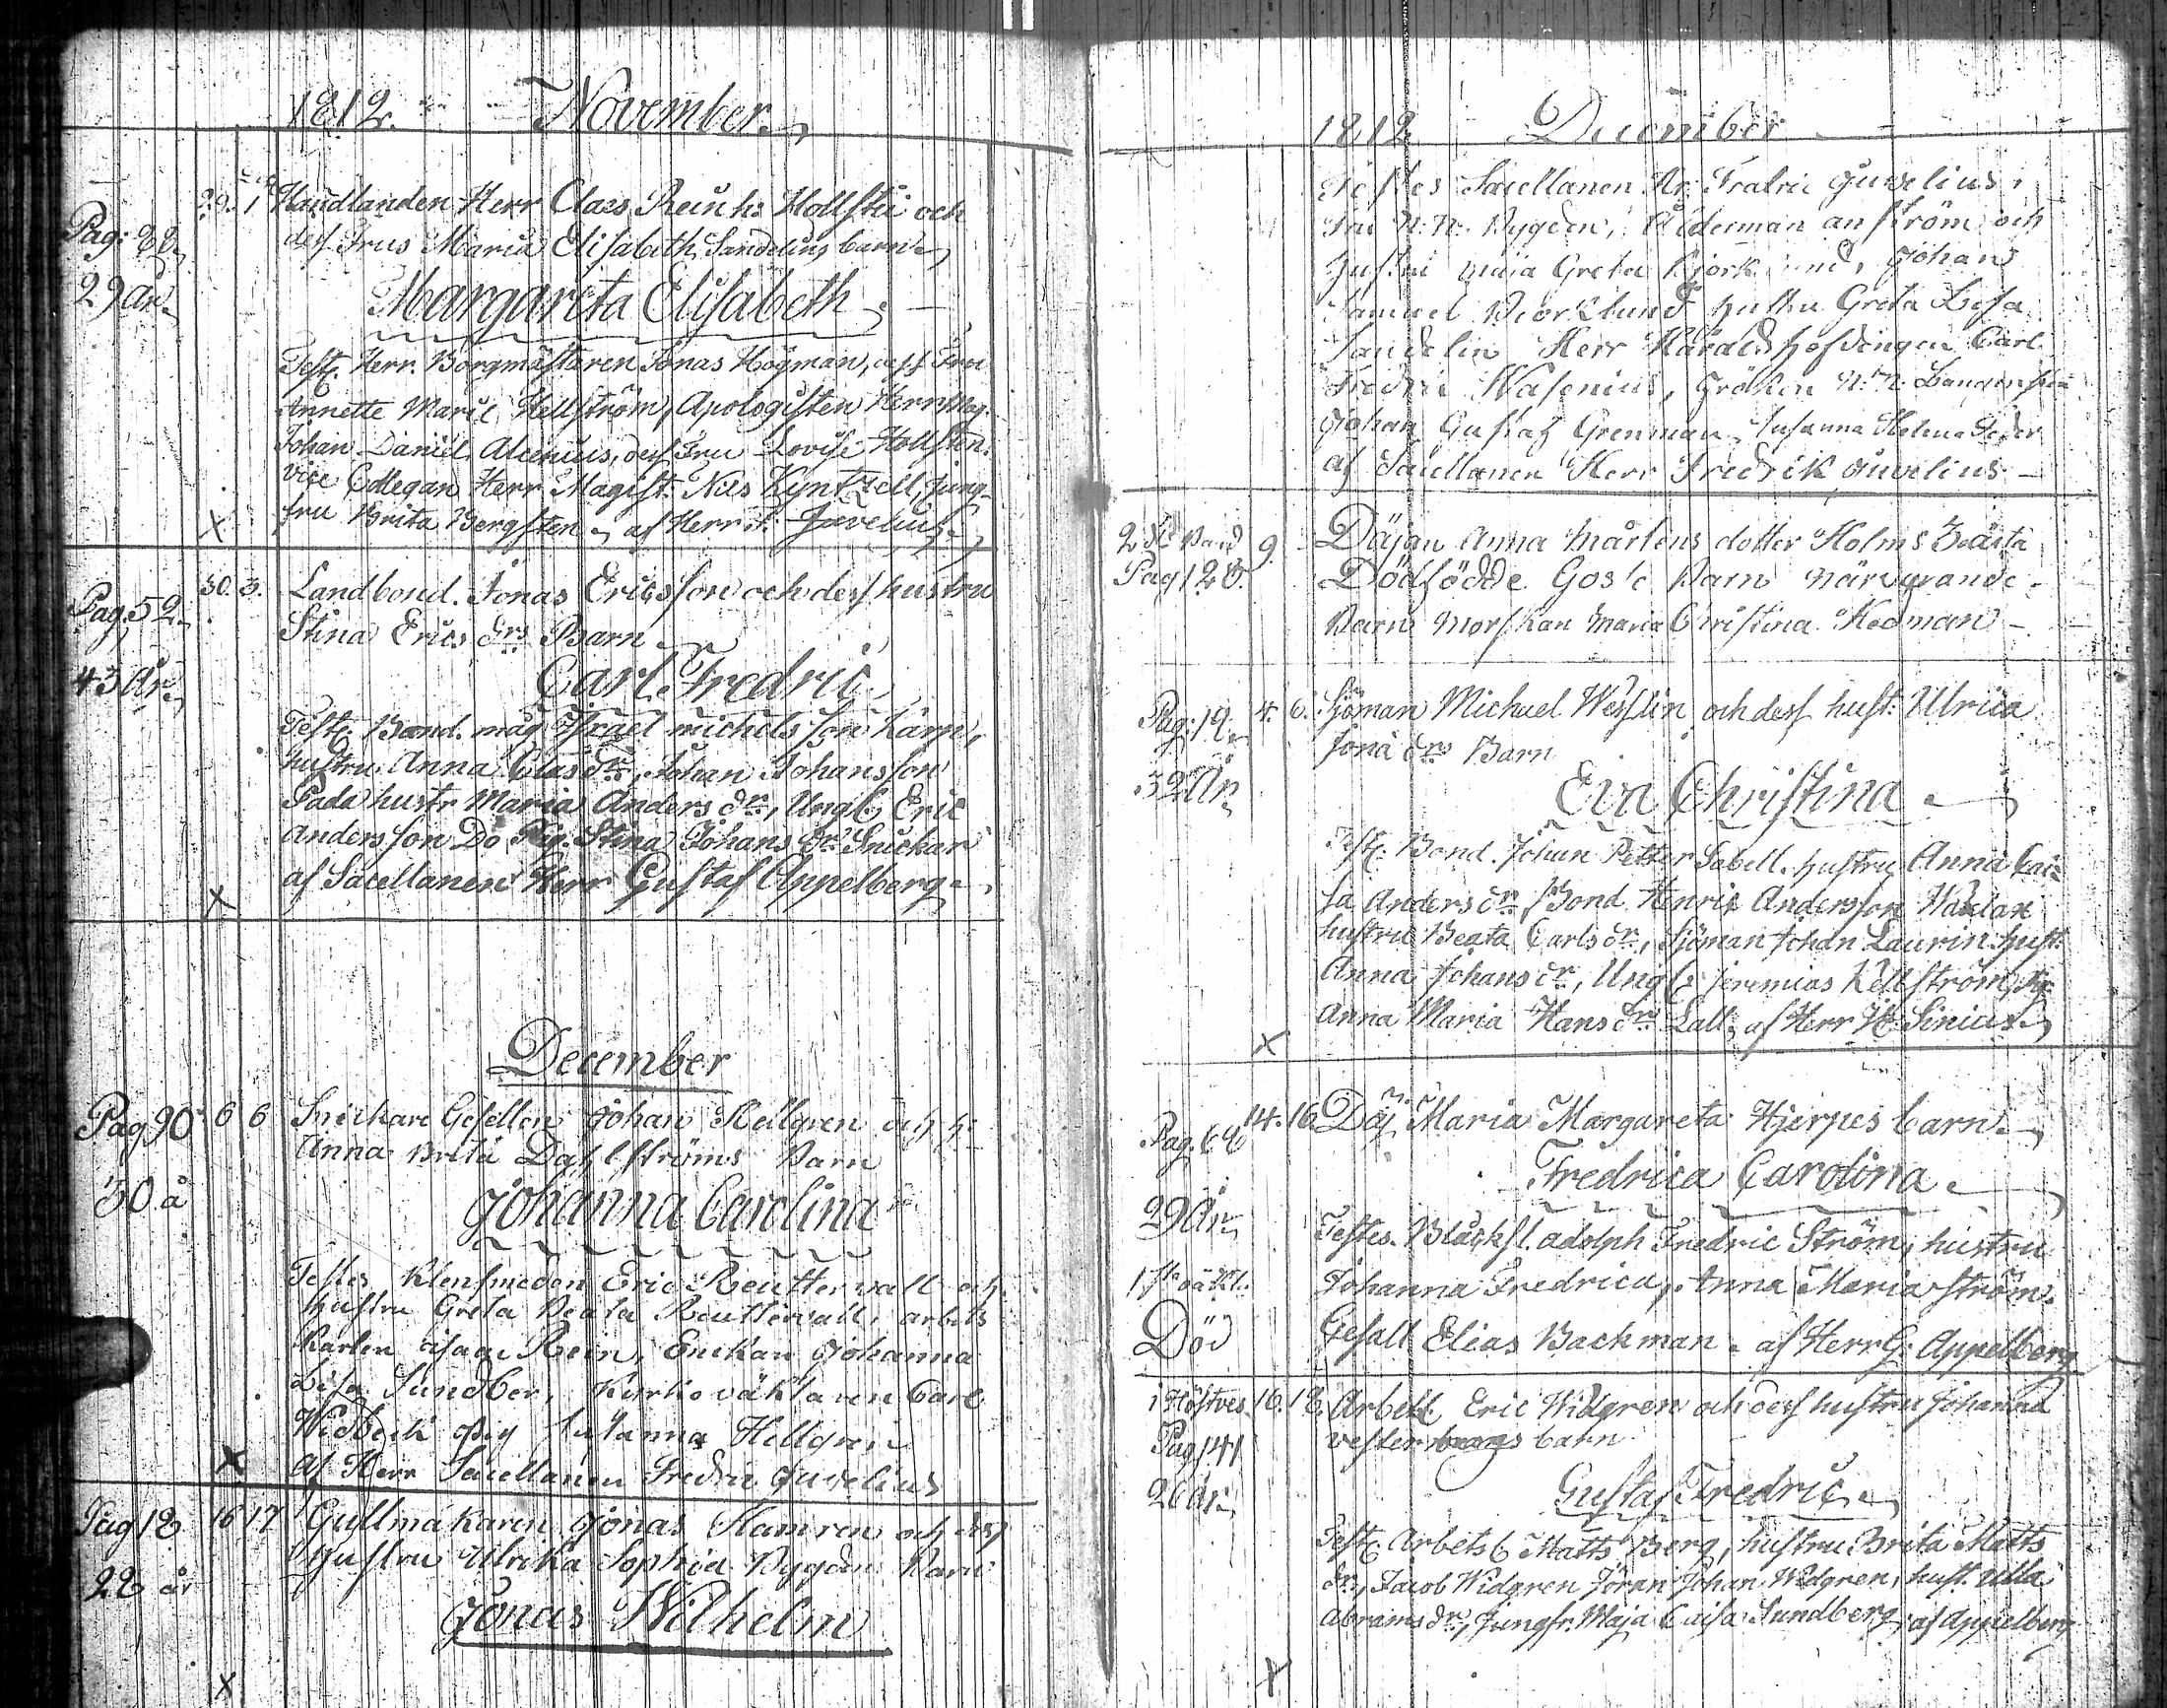 1812. November
Pag: 22 29. 1 Handlanden Herr Claes Reinh: Hollsten och
dess Frus Maria Elisabeth Sandelins barn
29 År
Margareta Elisabeth
Test. Herr Borgmästaren Jonas Högman, dess Fru
Annette Marie Hellström, Apologisten Herr Mag.
Johan Daniel Alcenius, dess Fru Lovise Hollsten.
Vice Collegan Herr Magist. Nils Kyntzell, Jung-
fru Brita Bergsten af Herr F. Juvelius
X
Pag. 52 30. 3. Landbond. Jonas Ericsson och dess hustru
Stina Erics dr Barn
43 År
Carl Fredric
Test. Bond. måg Israel michelsson Kärn,
hustru Anna Clas dr, Johan Johansson
Pada hustr Maria Anders dr, Ungk Eric
Andersson Do Pig. Stina Johans dr Snickar
af Sacellanen Herr Gustaf Appelberg
X
December
Pag 90 6 6 Snickare Gesellen Johan Kellgren och h:
Anna Brita Dahlströms Barn
30 å
Johanna Carolina
Testes Klensmeden Eric Reutterwall och
hustru Greta Beata Reutterwall, arbets
Karlen Isaac Rein, Enckan Johanna
Lisa Sundber, Kyrkioväktaren Carl
Widbeck Pig Susanna Hellgren
af Herr Sacellanen Fredric Juvelius
X
Pag 12 16 17 Gullmakaren Jonas Hamren och dess
Hustru Ulrika Sophia Bygden Barn
22 år
Jonas Wilhelm
X
1812 December
Testes Sacellanen Hr: Fredric Juvelius,
Fru N:N: Bygden, Ålderman anström och
Hustru Maja Greta Björklund, Johan
Samuel Biorklund Hustru Greta Lisa
Sandelin Herr Häradshöfdingen Carl
Fredric Wasenius, Fröken N:N: Langenskiö
Johan Gustaf Grenman, Susanna Helena Feder
af Sacellanen Herr Fredrik Juvelius
9. Däjan Anna Mårtens dotter Holms
Pag 128. Dödfödde Gosse Barn närvarande
Barn morskan Maria Christina Hedman
Pag: 19 4. 6. Sjöman Michael Wesslin och dess hust: Ulrica
Jona drs Barn
32 År
Eva Christina
Test. Bond. Johan Petter Sabell. hustru Anna Cai-
sa Anders dr, Bond Henric Andersson
hustru Beata Carls dr, Sjöman Johan Laurin. hust.
Anna Johans dr, Ungk Jeremias Kellström, Pig
Anna Maria Hans dr Lall, af Herr
X
Pag. 68 14. 16. Däj. Maria Margareta Hjerpes barn
Fredrica Carolina
29 År
Testes. Blåcksl. adolph Fredric Ström, hustru
Johanna Fredrica, Anna Maria Ström.
Död Gesall Elias Backman. af Herr G. Appelberg
16. 18. Arbetk Eric Widgren och dess hustru Johanna
Pag 141 vesterbergs barn
26 År
Gustaf Fredric
Test. Arbetsk Matts Berg, hustru Brita Matts
dr, Jacob Widgren Jöran Johan Widgren, hust. Ulla
Abrams dr, Jungfr. Maja Caisa Sundberg, af Appelberg
X